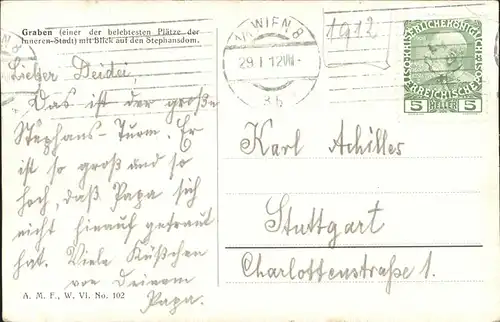 Graben (einer der belebtesten Plätze der
inneren Stadt) mit Blick auf den Stephansdom.
Lieber Deidei,
Das ist der große
Stephans-Turm. Er
ist so groß und so
hoch, daß Papa sich
nicht hinauf getraut
hat. Viele Küßchen
von Deinem
Papa.
A. M. F., W. VI. No. 102
WIEN 8
29. I 12
1912
5 HELLER 5
Karl Achilles
Stuttgart
Charlottenstraße 1.